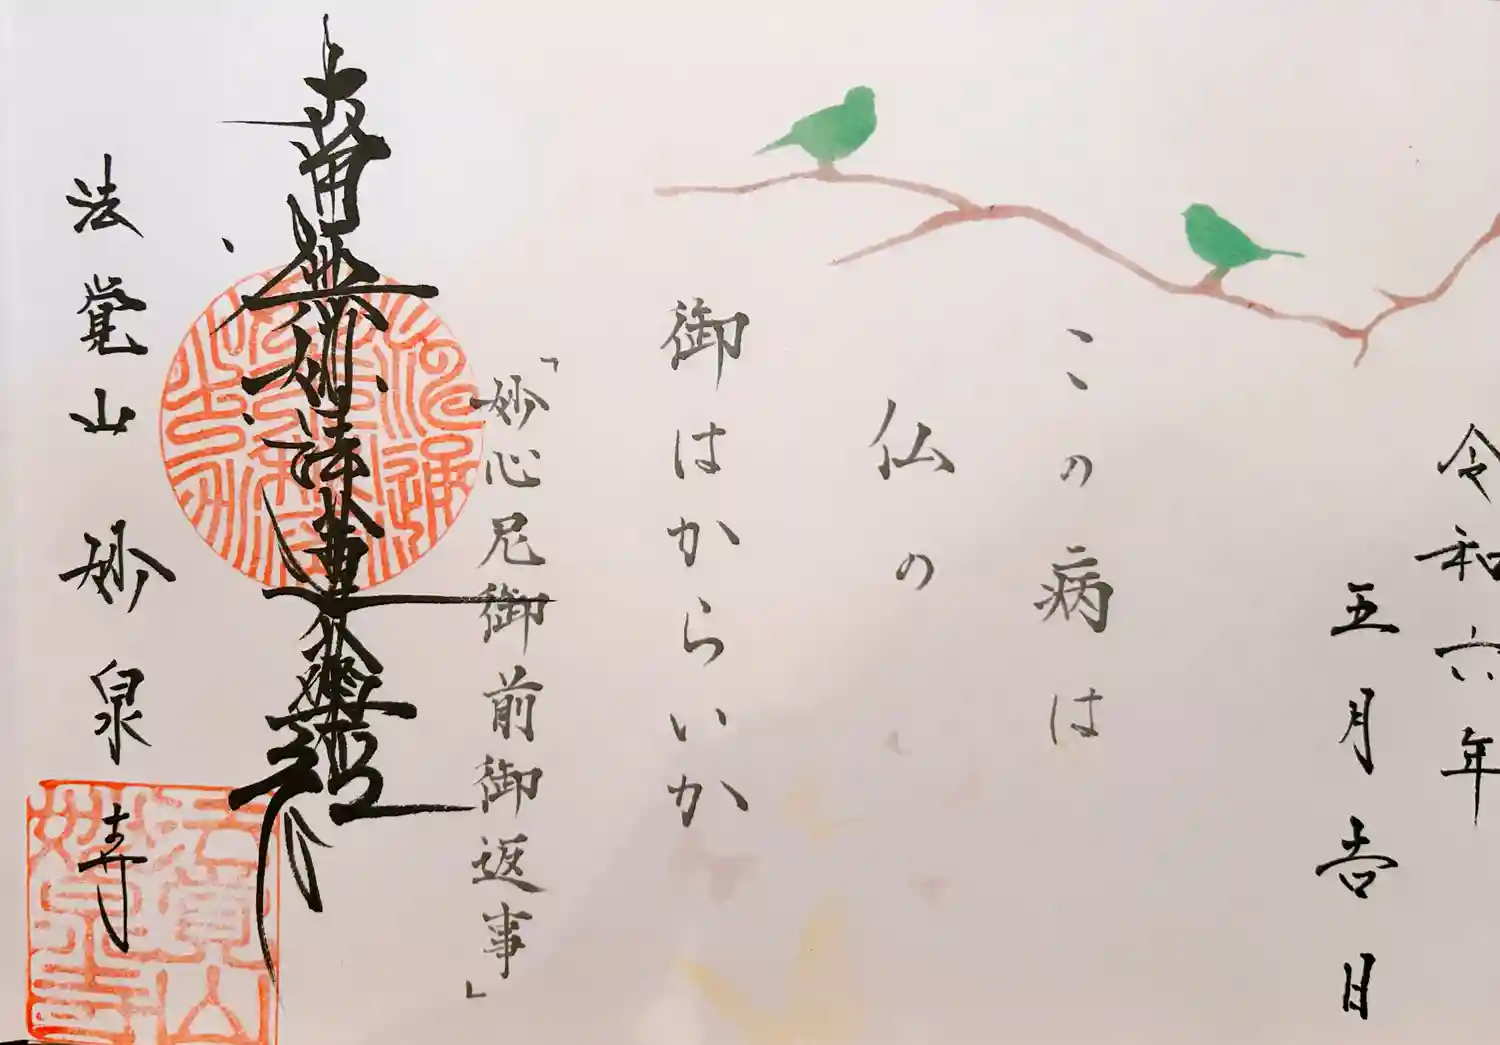 令和六年
五月吉日
この病は
仏の
御はからいか
「妙心尼御前御返事」
南無妙法蓮華経
法覚山 妙泉寺
法覚山
妙泉寺